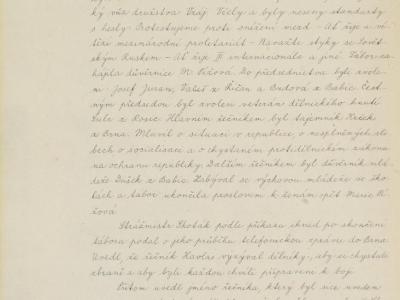 ký vůz družstva Vzáj Včely a byly neseny standarty
s hesly Protestujeme proti snížení mezd - Ať žije a ví-
tězí mezinárodní proletariát - Navažte styky se Sovět-
ským Ruskem - Ať žije III internacionala a jiné. Tábor za-
hájila důvěrnice M. Růžová. Do předsednictva byli zvole-
ni Josef Juran, Valeš z Říčan a Budová z Babic. Čest-
ným předsedou byl zvolen veterán dělnického hnutí
z Rosic Hlavním řečníkem byl tajemník
z Brna. Mluvil o situaci v republice, o nesplněných sli-
bech o socialisaci a o chystaném protidělnickém zákonu
na ochranu republiky. Dalším řečníkem byl důvěrník mlá-
deže Dušek z Babic. Zabýval se výchovou mládeže ve ško-
lách a tábor ukončila proslovem k ženám opět Marie Rů-
žová
Strážmistr Skoták podle příkazu ihned po skončení
tábora podal o jeho průběhu telefonickou zprávu do Brna
Uvedl, že řečník Kavlas vyzýval dělníky, aby se chystali
zbraní a aby byli každou chvíli připraveni k boji
uvedl jméno řečníka, který byl sice uveden